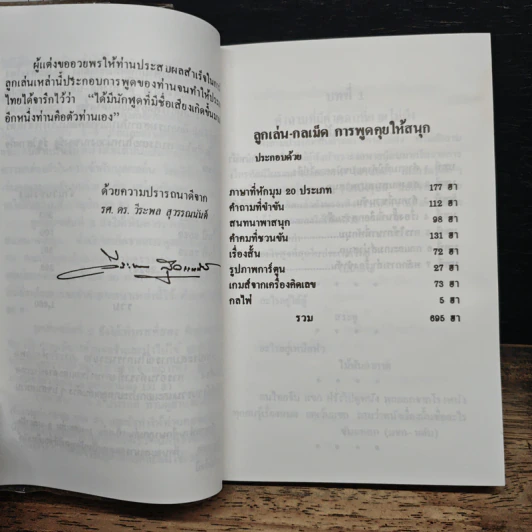 ผู้แต่งขออวยพรให้ท่านประสบผลสำเร็จในการ
ลูกเล่นเหล่านี้ประกอบการพูดของท่านจนทำให้
ไทยได้จารึกไว้ว่า "ได้มีนักพูดที่มีชื่อเสียงเกิดขึ้น
อีกหนึ่งท่านคือตัวท่านเอง"
ด้วยความปรารถนาดีจาก
รศ. ดร. วีระพล สุวรรณนันต์
ลูกเล่น-กลเม็ด การพูดคุยให้สนุก
ประกอบด้วย
ภาษาที่หักมุม 20 ประเภท 177 ฮา
คำถามที่ขำขัน 112 ฮา
สนทนาพาสนุก 98 ฮา
คำคมที่ชวนขัน 131 ฮา
เรื่องสั้น 72 ฮา
รูปภาพการ์ตูน 27 ฮา
เกมส์จากเครื่องคิดเลข 73 ฮา
กลไพ่ 5 ฮา
รวม 695 ฮา